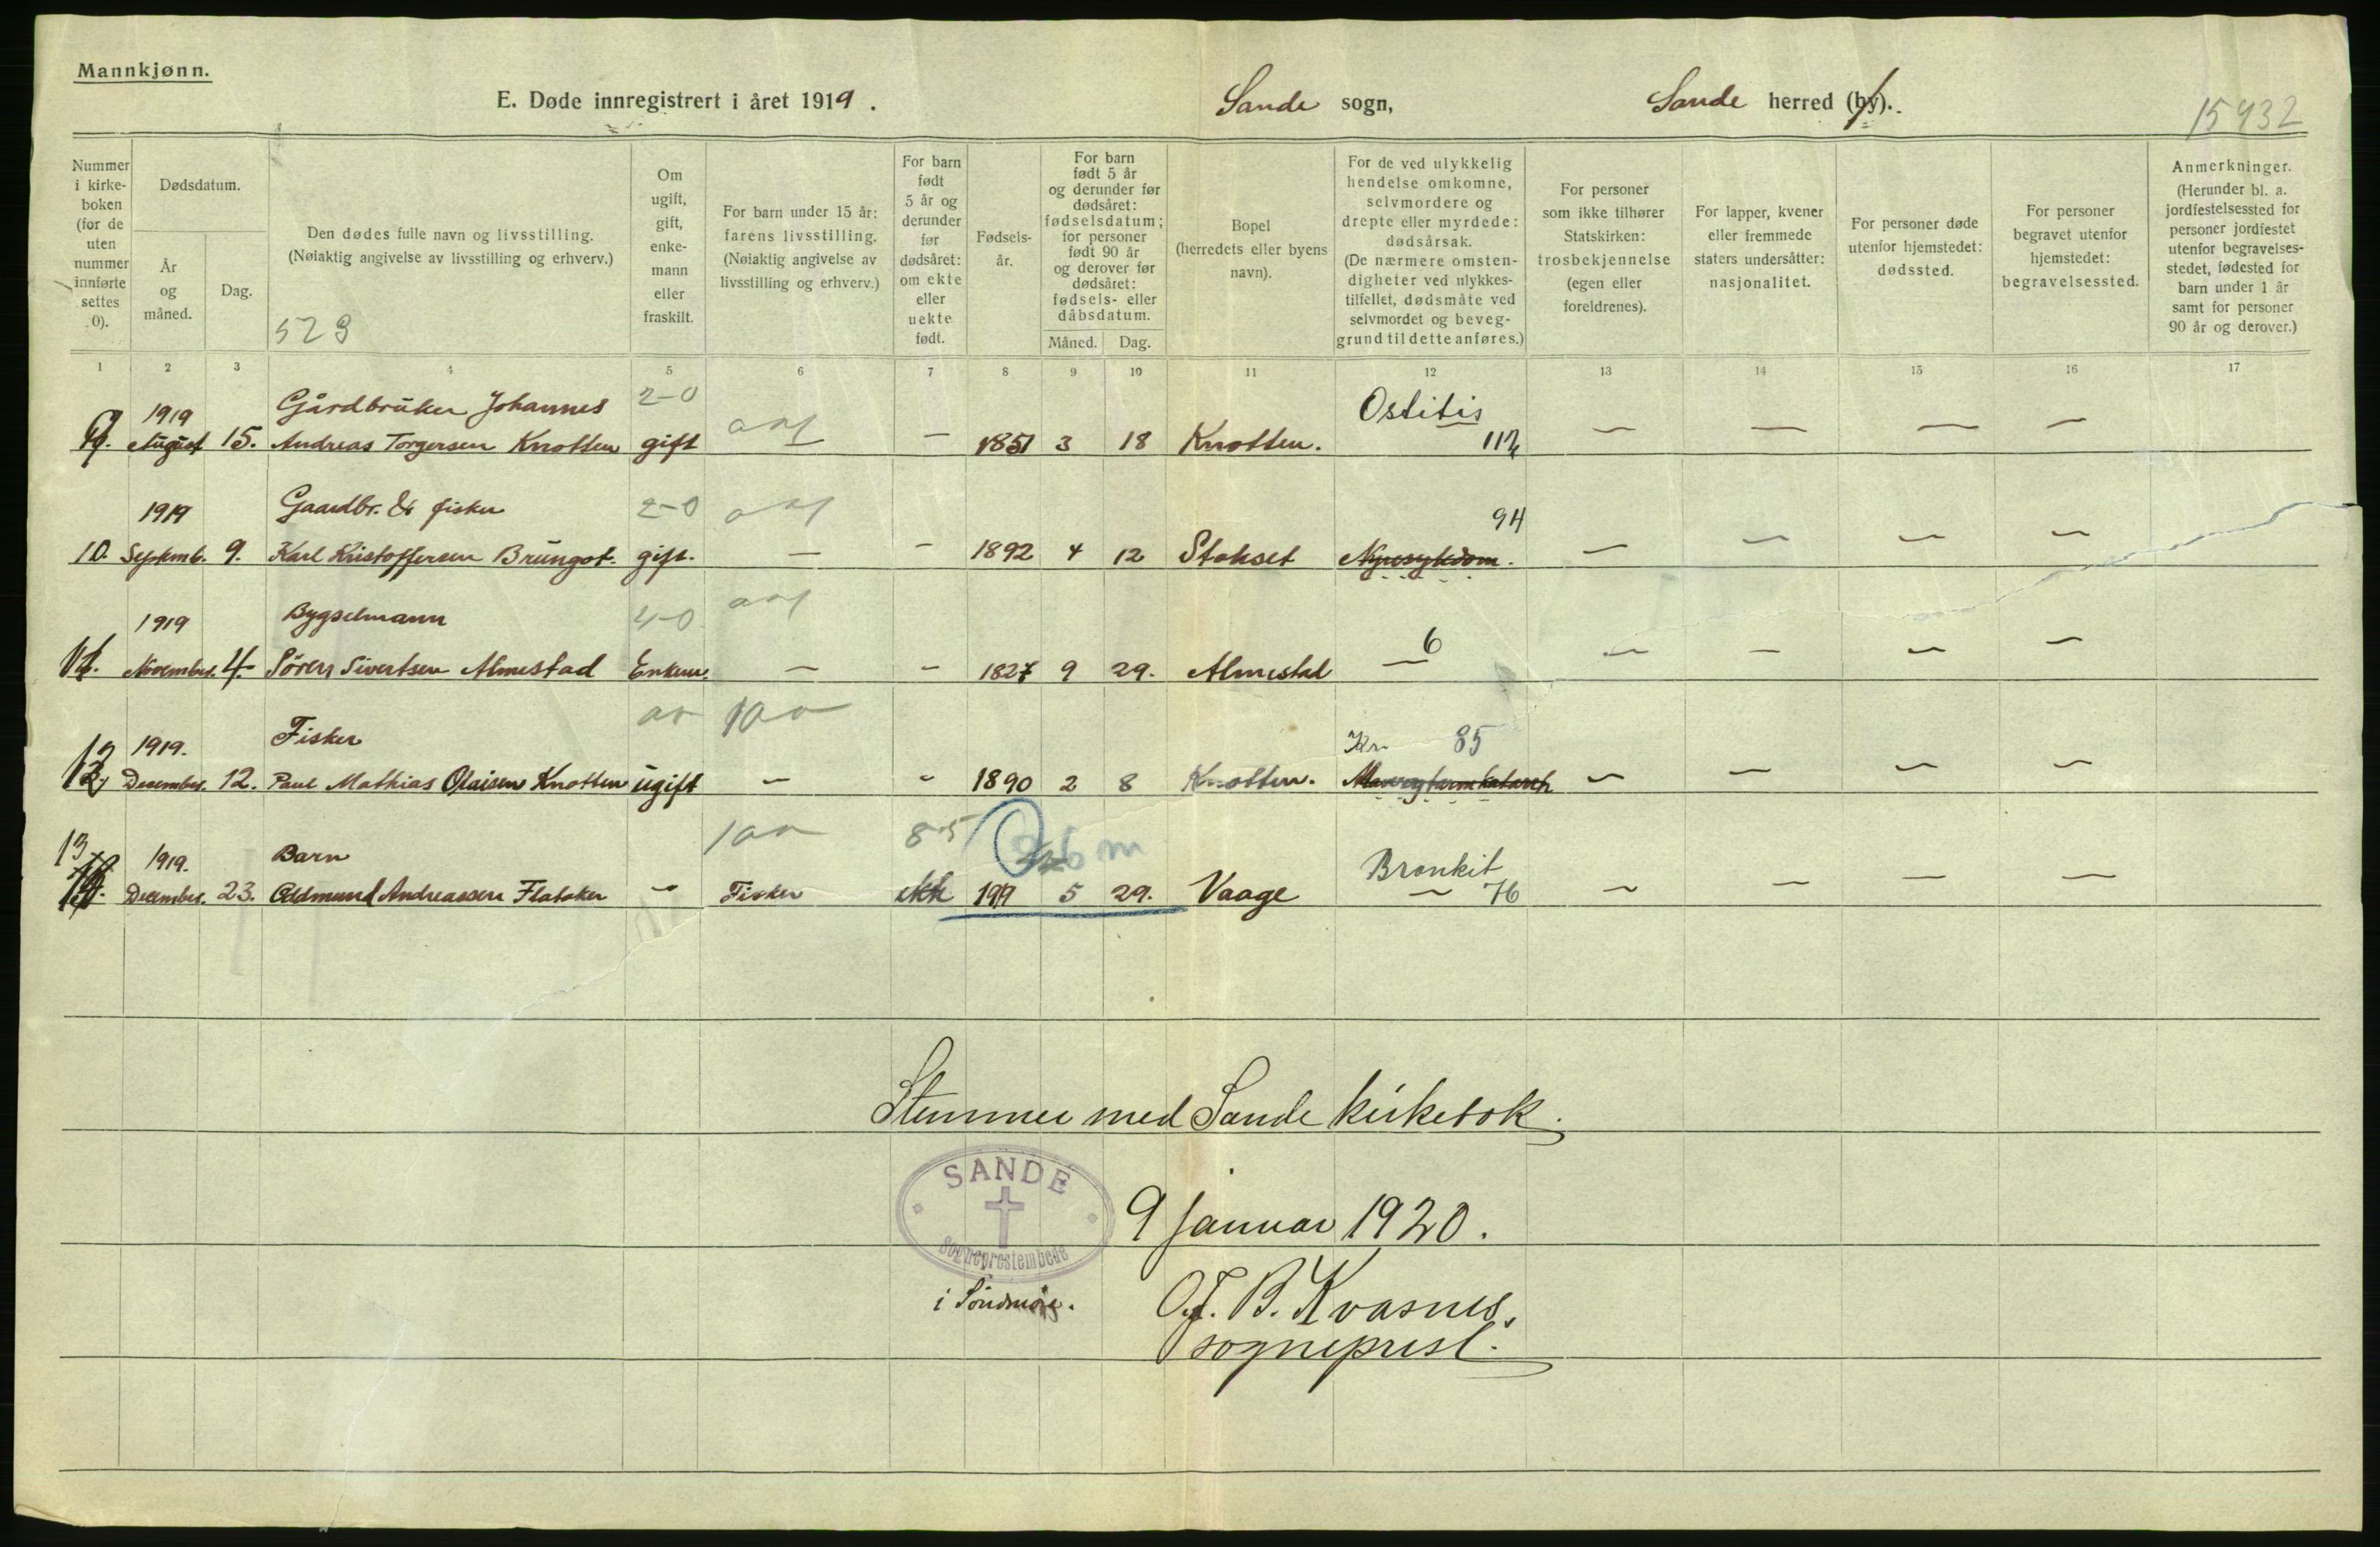 Mannkjønn.
E. Døde innregistrert i året 1919.
Sande sogn,
Sande herred (by).
15432
Nummer i kirke-boken (for de uten nummer innførte settes 0).
Dødsdatum.
År og måned.
Dag.
Den dødes fulle navn og livsstilling.
(Nøiaktig angivelse av livsstilling og erhverv.)
528
Om ugift, gift, enke-mann eller fraskilt.
For barn under 15 år: farens livsstilling. (Nøiaktig angivelse av livsstilling og erhverv.)
For barn født 5 år og derunder før dødsåret: om ekte eller uekte født.
Fødsels-år.
For barn født 5 år og derunder før dødsåret: fødselsdatum; for personer født 90 år og derover før dødsåret: fødsels- eller dåbsdatum.
Måned. Dag.
Bopel (herredets eller byens navn).
For de ved ulykkelig hendelse omkomne, selvmordere og drepte eller myrdede: dødsårsak. (De nærmere omsten-digheter ved ulykkes-tilfellet, dødsmåte ved selvmordet og beveg-grund til dette anføres.)
For personer som ikke tilhører Statskirken: trosbekjennelse (egen eller foreldrenes).
For lapper, kvener eller fremmede staters undersåtter: nasjonalitet.
For personer døde utenfor hjemstedet: dødssted.
For personer begravet utenfor hjemstedet: begravelsessted.
Anmerkninger. (Herunder bl. a. jordfestelsessted for personer jordfestet utenfor begravelses-stedet, fødested for barn under 1 år samt for personer 90 år og derover.)
1 2 3 4 5 6 7 8 9 10 11 12 13 14 15 16 17
1919 Gårdbruker Johannes 2-0 Ostitis
9. August 15. Andreas Torgersen Knotten gift — 1851 3 18 Knotten. 112 — — — —
1919 Gaardbr. & fisker 2-0 94
10. Septemb. 9. Karl Kristoffersen Brungot. gift. — — 1892 4 12 Stokset Nyresykdom. — — — —
1919 Bygselmann 4-0 6
11. November. 4. Sören Sivertsen Almestad Enkem. — — 1827 9 29. Almestad — — — — —
1919. Fisker Kr. 85
12 December. 12. Paul Mathias Olaisen Knotten ugift — — 1890 2 8 Knotten. Mave og tarmkatarrh — — — —
13 1919. Barn 85 6 m Bronkit
December. 23. Oddmund Andreassen Flatsker — Fisker ekte 1919 5 29. Vaage — 76 — — — —
Stemmer med Sande kirkebok.
SANDE
Sogneprestembede
i Söndmöre.
9 januar 1920.
O.J. B. Kvasnes,
sogneprest.